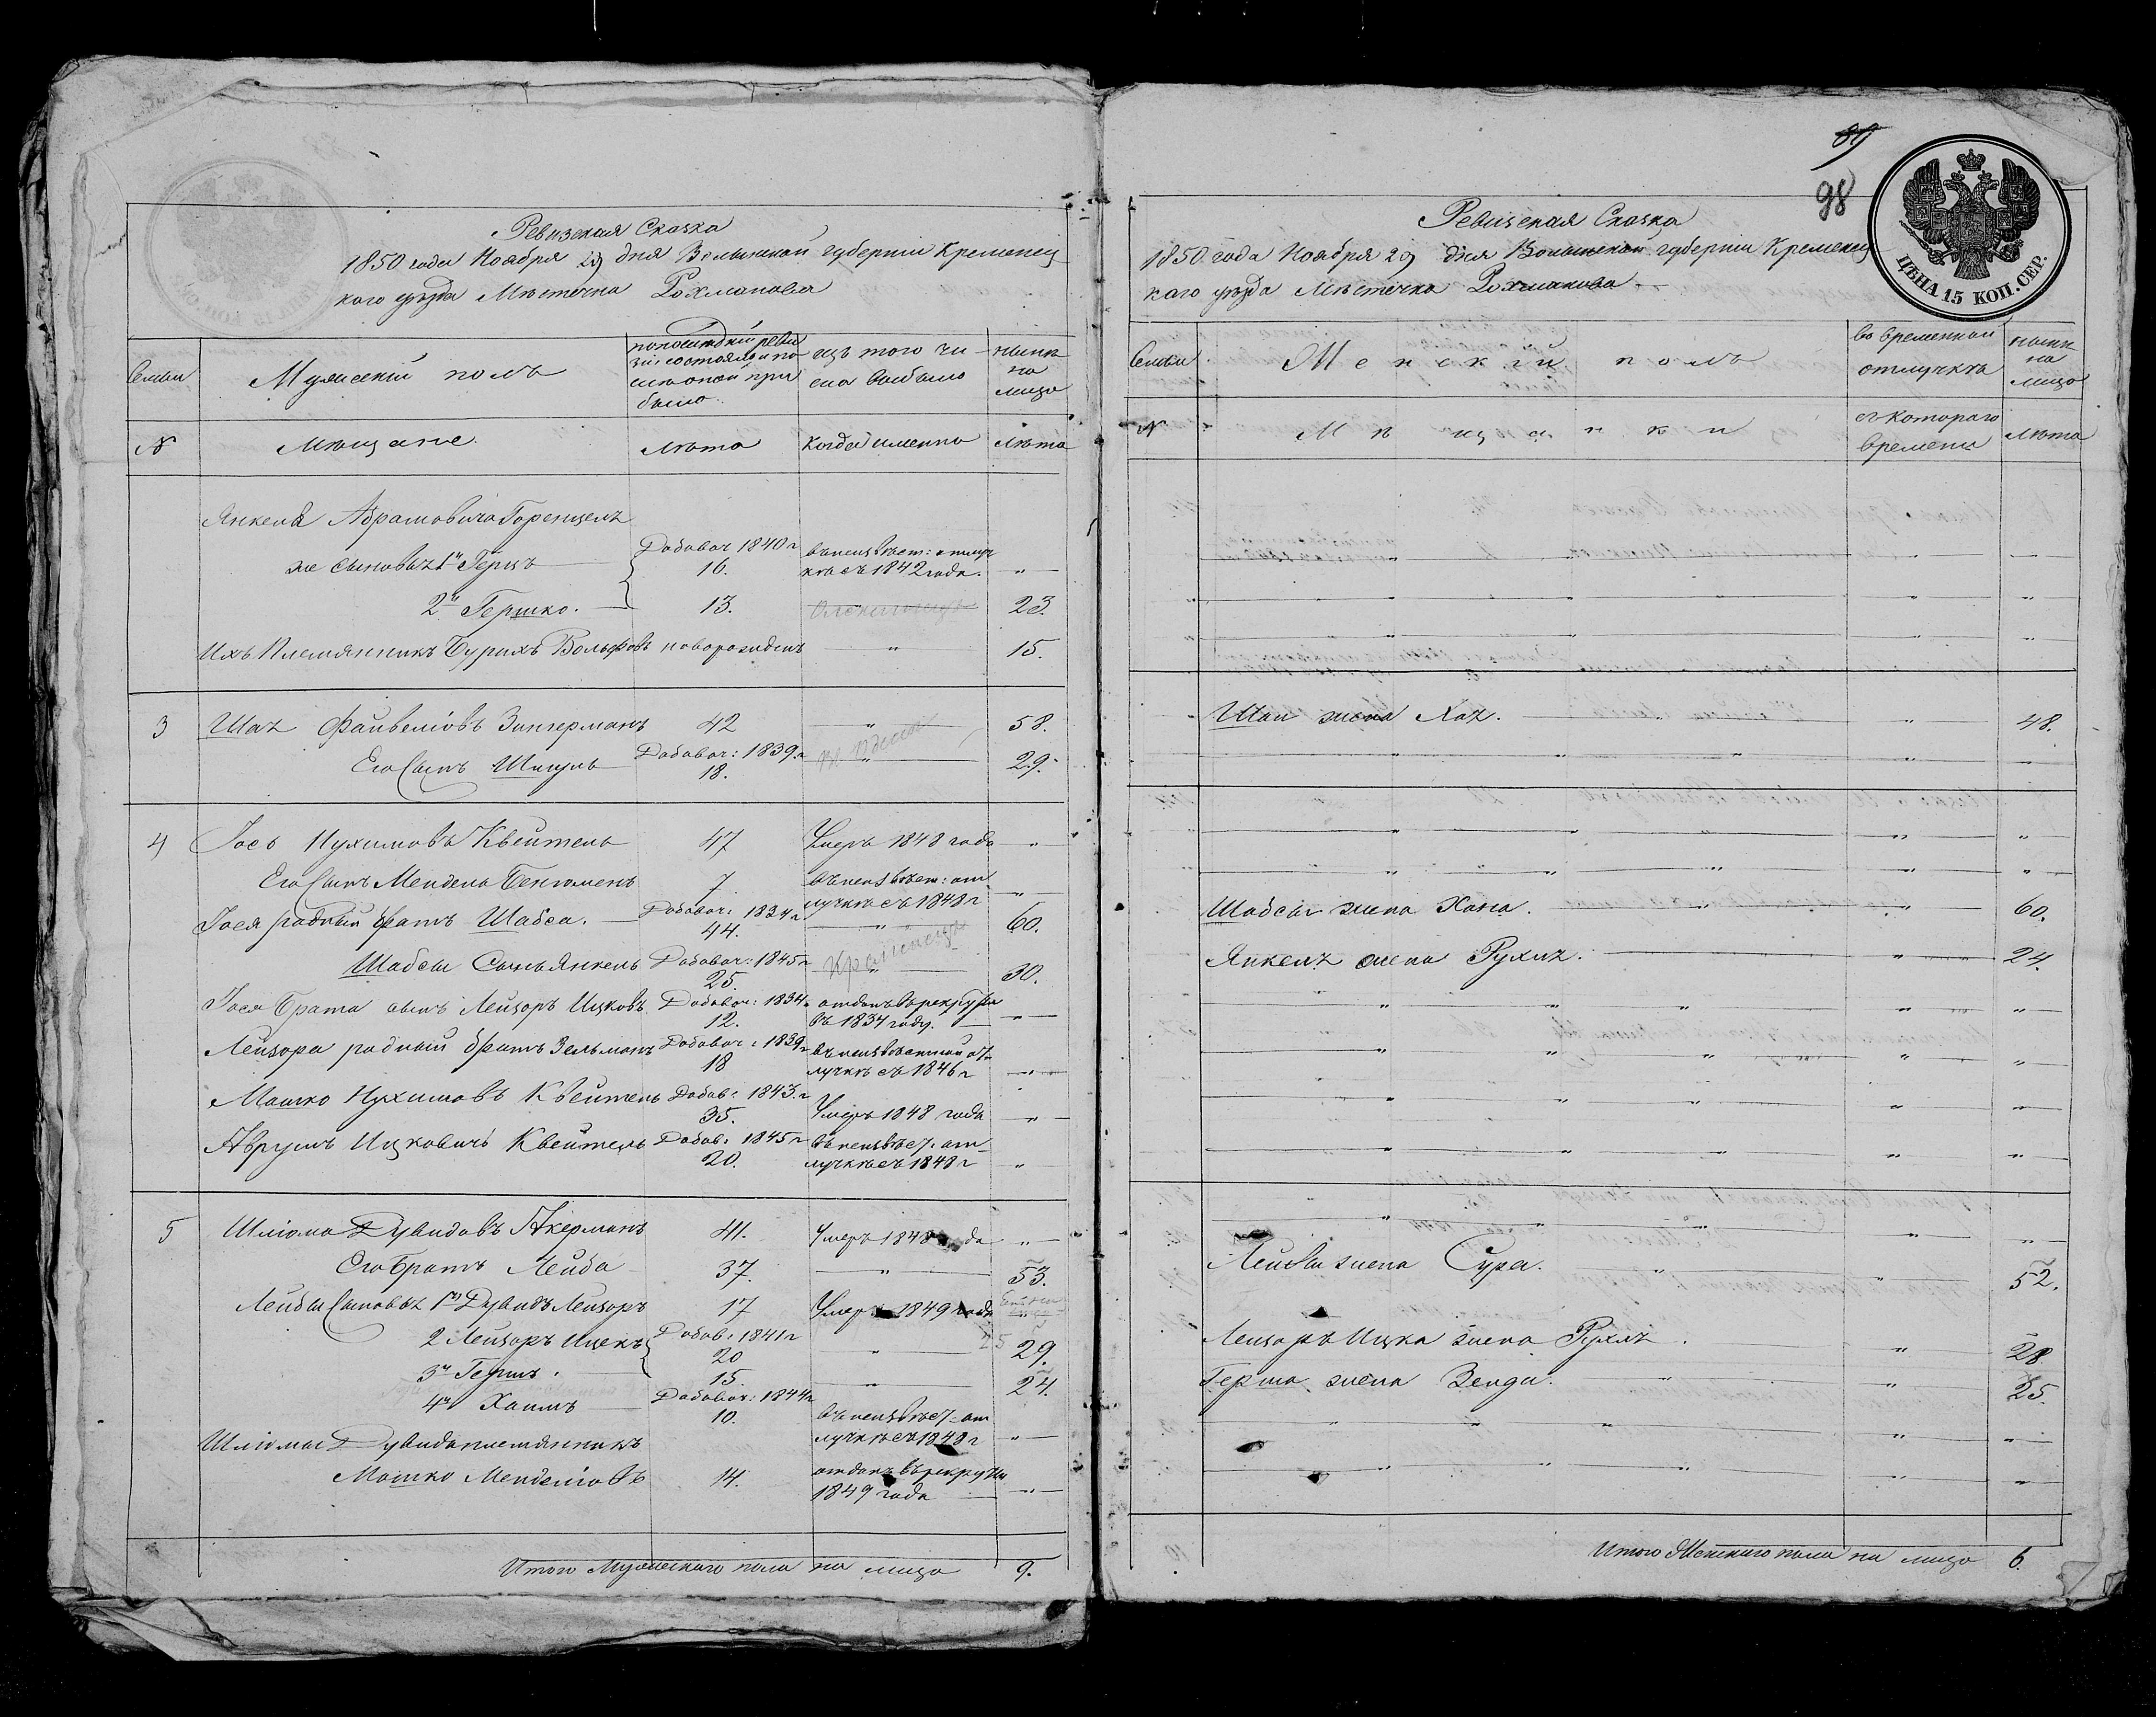 Ревизская Сказка
1850 года Ноября 29 дня Волынской губернии Кременец
каго уѣзда Мѣстечка Рохманова
Семьи
Мужескій полъ
по последней реви
зіи состояло и по
слѣ оной при
было
изъ того чи
сла выбыло
нынѣ
на
лицо
№
Мѣщане
лѣта
Когда именно
Лѣта
Янкеля Абрамовича Горенцель
же сыновья 1й Герцъ
Добавоч 1840 г
16.
въ неизвѣст: отлуч
кѣ съ 1842 года.
"
2й Гершко.
13.
23.
Ихъ Племянникъ Бурихъ Вольфовъ
новорожденъ
"
15.
3
Шая Файвелiовъ Зингерманъ
42
"
58.
Его Сынъ Шмуль
Добавоч: 1839 г
18.
"
29.
4
Іось Нухимовъ Квейтель
47
Умеръ 1848 года
"
Его Сынъ Мендель Бенюменъ
7
въ неизвѣст: от
лучкѣ съ 1848 г
"
Іося родный братъ Шабса.
Добавоч: 1834 г
44.
"
60.
Шабсы Сынъ Янкель
Добавоч: 1845 г
25.
Кременецъ
"
30.
Іося брата сынъ Лейзоръ Ицковъ
Добавоч: 1834 г
12.
отданъ въ рекруты
въ 1834 году.
"
Лейзора родный братъ Зельманъ
Добавоч: 1839 г
18
въ неизвѣстной от
лучкѣ съ 1846 г
"
Мошко Нухимовъ Квейтель
Добав: 1843 г
35.
Умеръ 1848 года
"
Аврумъ Ицковичъ Квейтель
Добав: 1845 г
20.
въ неизвѣст. от
лучкѣ съ 1848 г
"
5
Шліома Дувидовъ Акерманъ
41.
Умеръ 1848 года
"
Его братъ Лейба
37.
"
53.
Лейбы Сыновья 1й Дувидъ Лейзоръ
17
Умеръ 1849 года
2 Лейзоръ Ицекъ
Добав: 1841 г
20
"
29.
3й Герш.
15.
"
24.
4й Хаимъ
Добавоч: 1844 г
10.
въ неизвѣст. от
лучкѣ съ 1848 г
"
Шліомы Дувида племянникъ
Мошко Менделіовъ
14.
отданъ въ рекруты
1849 года
"
Итого Мужескаго пола на лицо
9.
89
98
ЦѢНА 15 КОП. СЕР.
Ревизская Сказка
1850 года Ноября 29 дня Волынской губерніи Кременец
каго уѣзда Мѣстечка Рохманова
Семьи
Женскій полъ
въ временной
отлучкѣ
нынѣ
на
лицо
№
Мѣщанки
съ котораго
времени
лѣта
Шаи жена Хая.
"
48.
Шабсы жена Хана.
"
60.
Янкеля жена Рухля.
"
24.
Лейбы жена Сура.
"
52.
Лейзоръ Ицка жена Рухля.
"
28
Герша жена Зенда.
"
25.
Итого Женскаго пола на лицо
6.